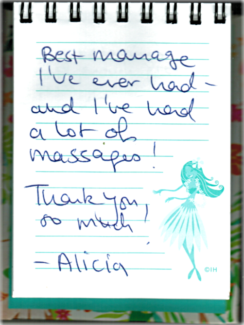 Best massage
I've ever had -
and I've had
a lot of
massages!
Thank you,
so much
- Alicia
©IH